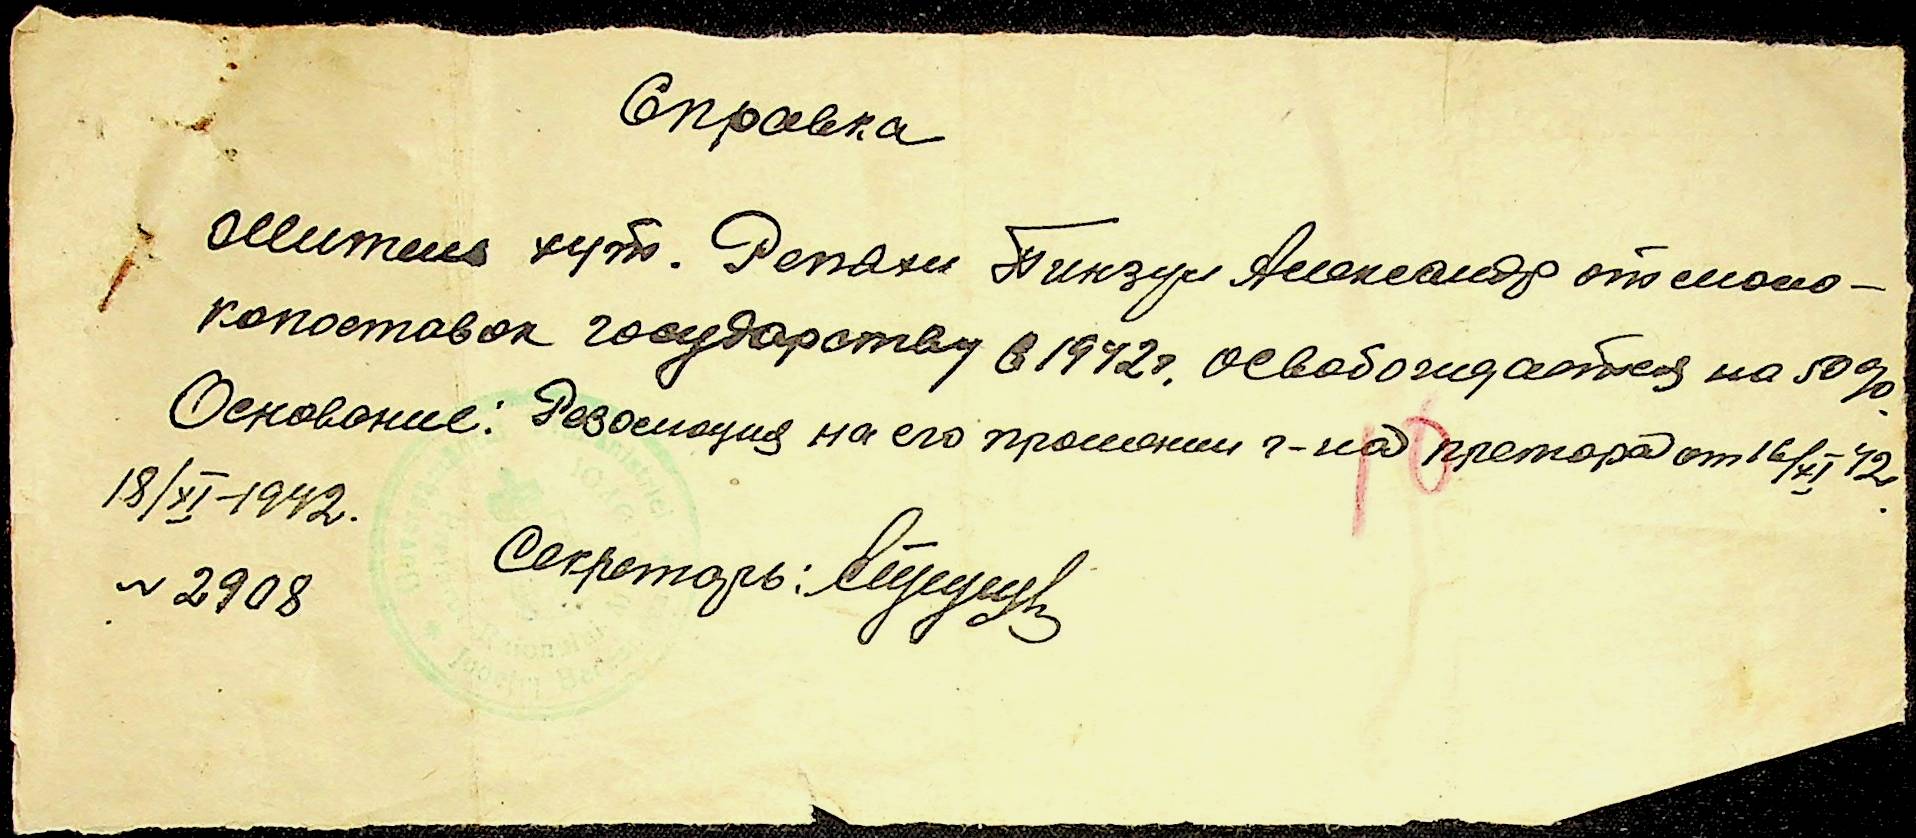 Справка
Житель хут. Репяхи Пинзул Александр от моло-
копоставок государству в 1942 г. освобождается на 50%.
Основание: Резолюция на его прошении г-на претора от 16/XI 42.
18/XI-1942.
№ 2908
Секретарь:
10